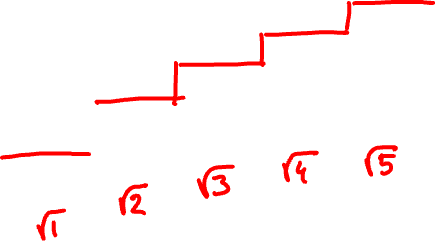 √1 √2 √3 √4 √5